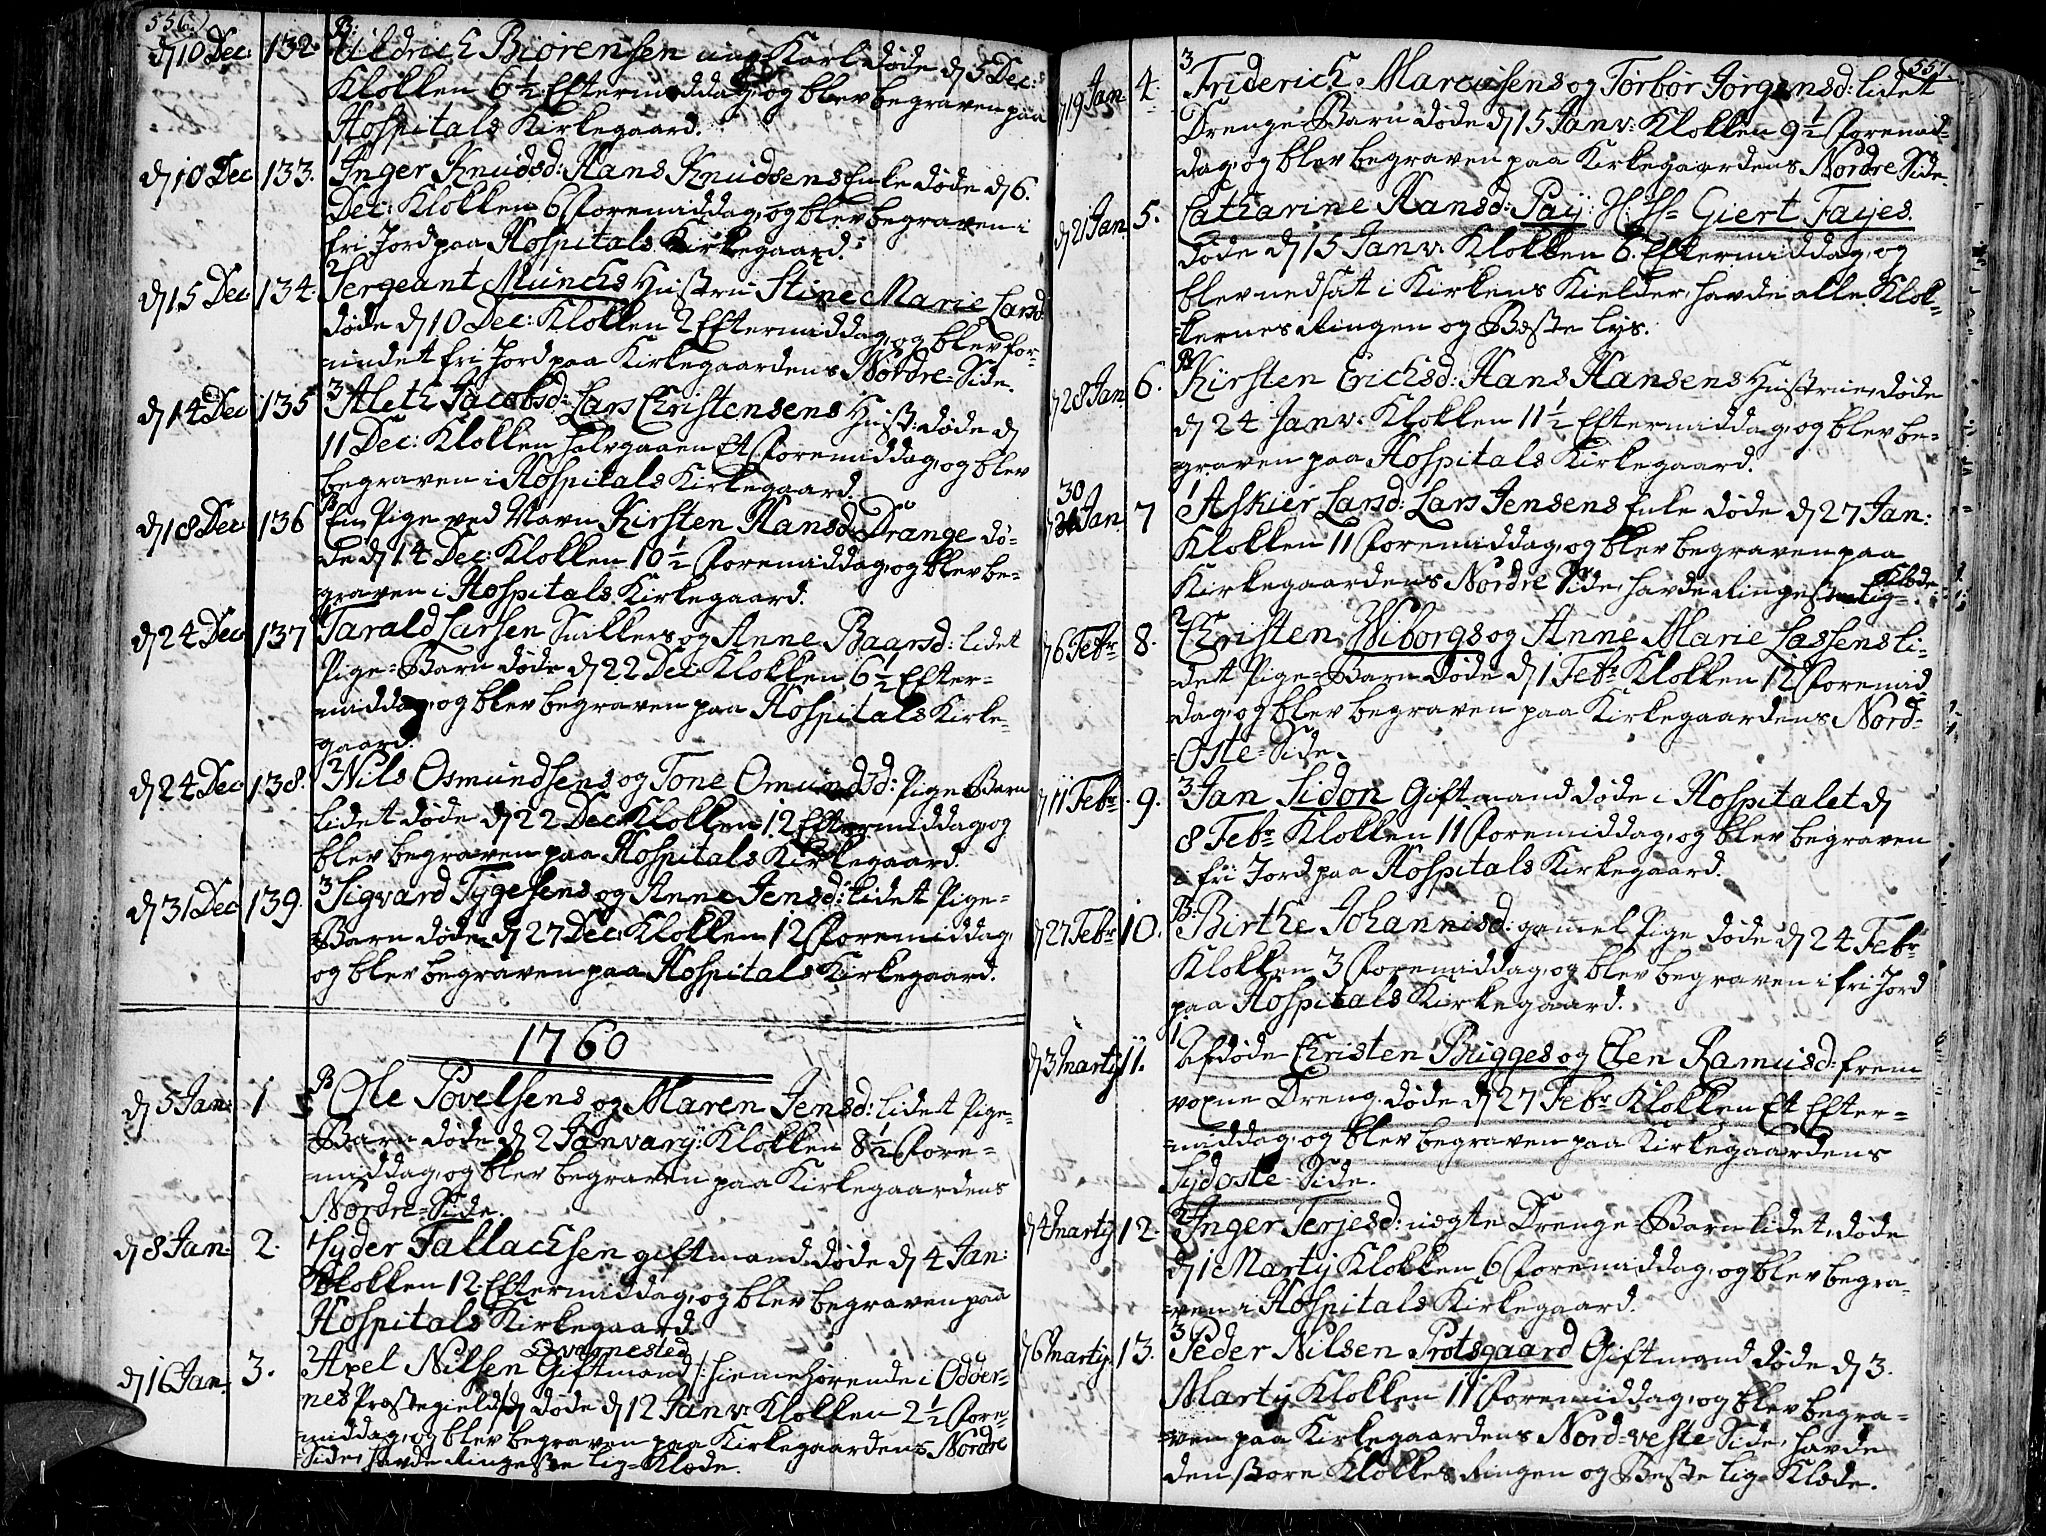 556.)
B.
d 10 Dec: 132. Uldrich Biörensen ung Karl døde d 5 Dec:
Klokken 6½ Eftermiddag, og blev begraven paa
Hospitals Kirkegaard.
1
d 10 Dec 133. Inger Knudsd: Hans Knudsens Enke døde d 6.
Dec: Klokken 6 Foremiddag, og blev begraven i
fri Jord paa Hospitals Kirkegaard.
2
d 15 Dec 134. Sergeant Münchs Hustru Stine Marie Larsd:
døde d 10 Dec: Klokken 2 Eftermiddag, og blev for-
undet fri Jord paa Kirkegaardens Nordre-Side.
3
d 14 Dec 135 Aleth Jacobsd: Lars Christensens Hust: døde d
11 Dec: Klokken halvgaaen Et Foremiddag, og blev
begraven i Hospitals Kirkegaard.
B
d 18 Dec 136 En Pige ved Navn Kirsten Hansd: Drange dø-
de d 14 Dec: Klokken 10½ Foremiddag, og blev be-
graven i Hospitals Kirkegaard.
1
d 24 Dec 137 Tarald Larsen Snikkers og Anne Baarsd: lidet
Pige-Barn døde d 22 Dec: Klokken 6½ Efter-
middag, og blev begraven paa Hospitals Kirke-
gaard.
2
d 24 Dec 138. Nils Osmundsens og Tone Omundsd: Pige Barn
lidet døde d 22 Dec Klokken 12 Eftermiddag, og
blev begraven paa Hospitals Kirkegaard.
3
d 31 Dec 139. Sigvard Tygesens og Anne Jensd: lidet Pige-
Barn døde d 27 Dec: Klokken 12 Foremiddag,
og blev begraven paa Hospitals Kirkegaard.
1760
B
d 5 Jan: 1 Ole Povelsens og Maren Jensd: lidet Pige-
Barn døde d 2 Janvarÿ: Klokken 8½ Fore-
middag, og blev begraven paa Kirkegaardens
Nordre-Side.
1
d 8 Jan: 2. Syder Tallachsen giftmand døde d 4 Jan:
Klokken 12 Eftermiddag, og blev begraven paa
Hospitals Kirkegaard.
2 Qvarnested
d 16 Jan: 3. Axel Nilsen Giftmand /: hiemehørende i Odder-
nes Præstegield :/ døde d 12 Janv: Klokken 2½ Fore-
middag, og blev begraven paa Kirkegaardens Nordre
Side, havde Ringeste Lig-Klæde.
557.
3
d 19 Jan 4. Friderich Marcusens og Torbor Jörgensd: lidet
Drenge-Barn døde d 15 Janv: Klokken 9½ Foremid-
dag, og blev begraven paa Kirkegaardens Nordre Side.
d 21 Jan. 5. Catharine Hansd: Paÿ: Giert Fayes.
døde d 15 Janv: Klokken 6. Eftermiddag, og
blev nedsat i Kirkens Kielder, havde alle Klok-
kernes Ringen og Bæste Lys.
B
d 28 Jan 6. Kirsten Erichsd: Hans Hansens Hustrue, døde
d 24 Janv: Klokken 11½ Eftermiddag, og blev be-
graven paa Hospitals Kirkegaard.
30 1
d Jan 7 Askier Larsd: Lars Jensens Enke døde d 27 Jan:
Klokken 11 Foremiddag, og blev begraven paa
Kirkegaardens Nordre Side, havde Ringeste Lig-
Klæde.
2
d 6 Febr 8. Christen Wiborgs og Anne Marie Lassens li-
det Pige-Barn døde d 1 Febr Klokken 12 Foremid-
dag, og blev begraven paa Kirkegaardens Nord-
Oste-Side.
3
d 11 Febr. 9. Jan Sidon Giftmand døde i Hospitalet d
8 Febr Klokken 11 Foremiddag, og blev begraven
i fri Jord paa Hospitals Kirkegaard.
B:
d 27 Febr 10. Birthe Johannisd: gamel Pige døde d 24 Febr
Klokken 3 Foremiddag, og blev begraven i fri Jord
paa Hospitals Kirkegaard.
1
d 3 Marty 11. Afdøde Christen Brigges og Elen Ramusd: frem-
voxne Dreng, døde d 27 Febr Klokken Et Efter-
middag, og blev begraven paa Kirkegaardens
Sydoste-Side.
2
d 4 Marty 12. Inger Terjesd: uægte Drenge-Barn lidet, døde
d 1 Martÿ Klokken 6 Foremiddag, og blev begra-
ven i Hospitals Kirkegaard.
3
d 6 Marty 13. Peder Nilsen Protsgaard Giftmand døde d 3.
Martÿ Klokken 11 Foremiddag, og blev begra-
ven paa Kirkegaardens Nord-veste Side, havde
den store Klokkes Ringen og Beste Lig-Klæde.